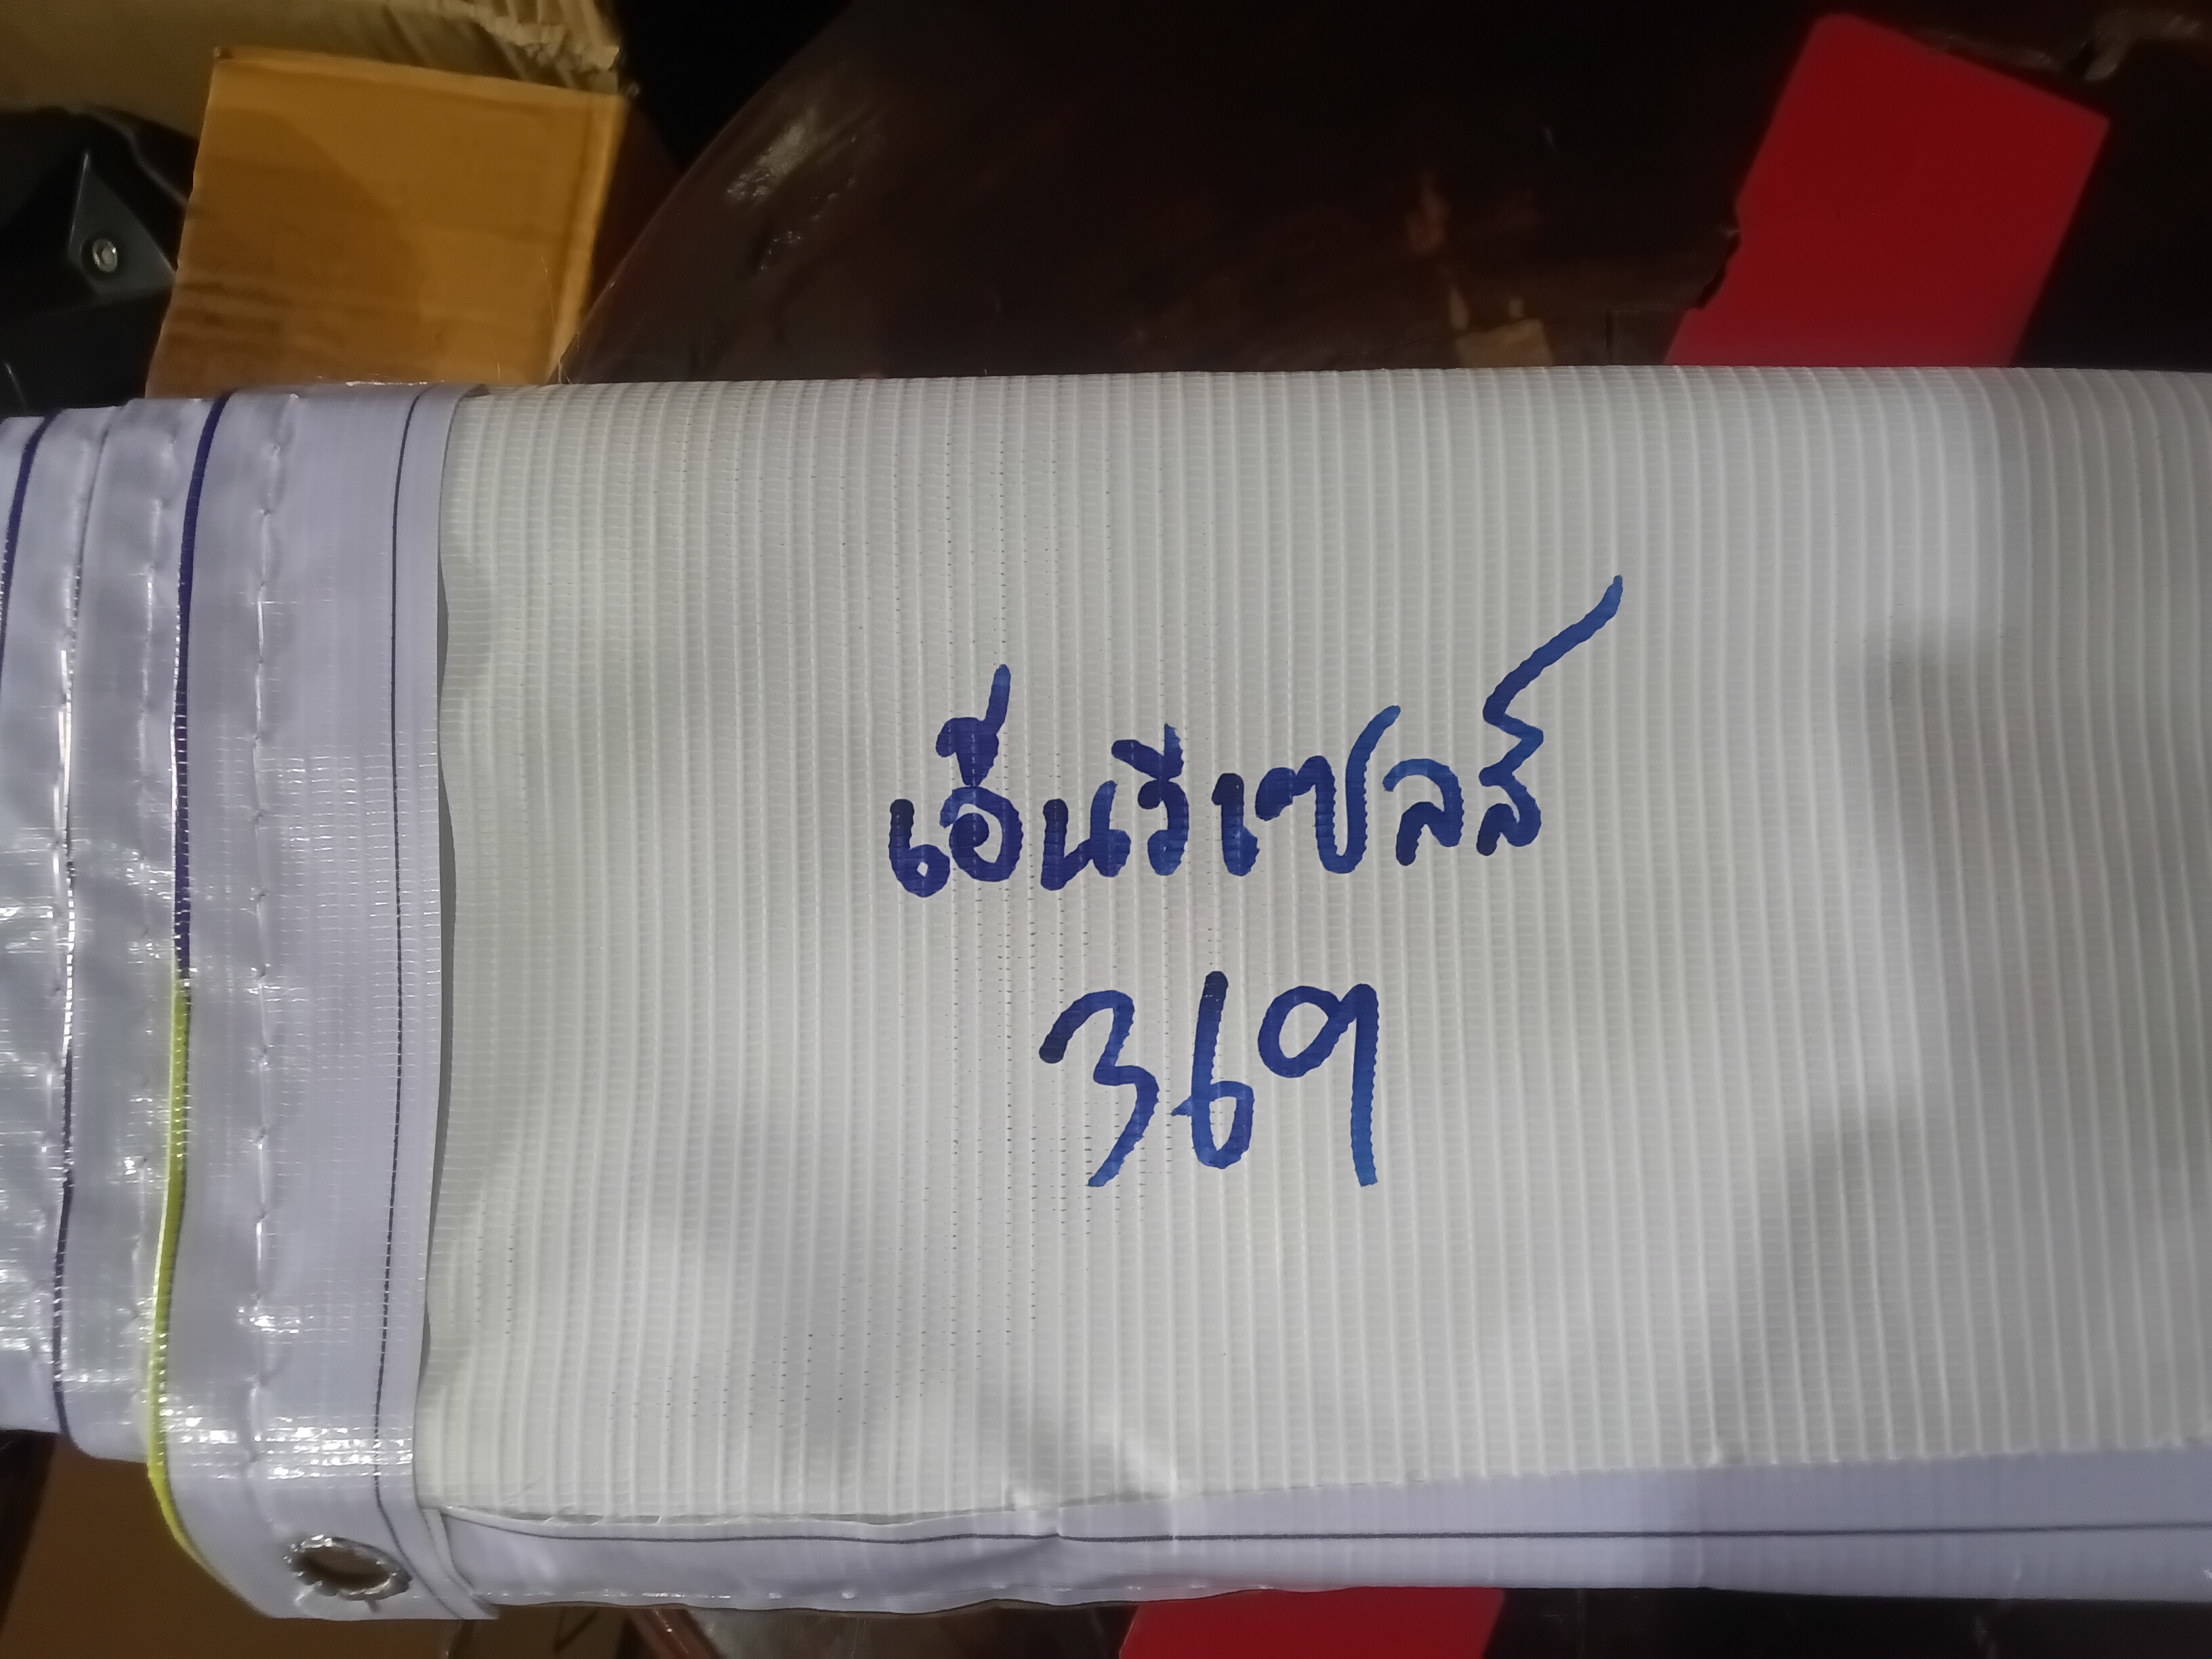 เอ็นวีเซลส์
369